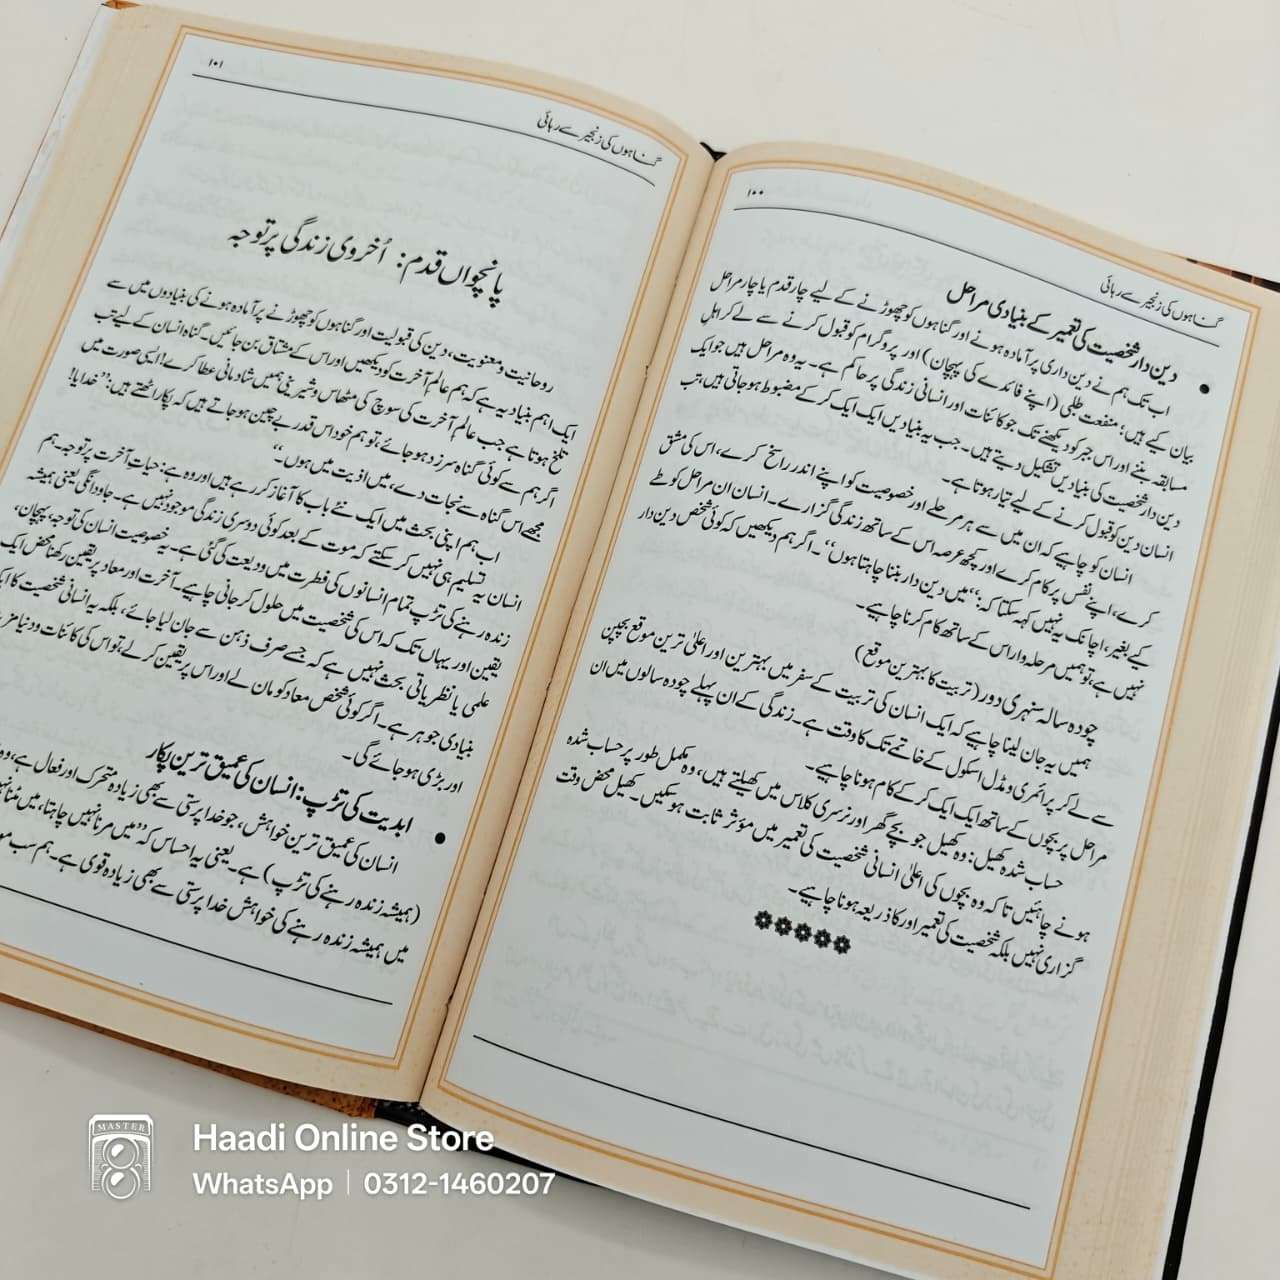 ۱۰۰
گناہوں کی زنجیر سے رہائی
• دین دار شخصیت کی تعمیر کے بنیادی مراحل
اب تک ہم نے دین داری پر آمادہ ہونے اور گناہوں کو چھوڑنے کے لیے چار قدم یا چار مراحل
بیان کیے ہیں؛ منفعت طلبی (اپنے فائدے کی پہچان) اور پروگرام کو قبول کرنے سے لے کر اہلِ
مسابقہ بننے اور اس جبر کو دیکھنے تک جو کائنات اور انسانی زندگی پر حاکم ہے۔ یہ وہ مراحل ہیں جو ایک
دین دار شخصیت کی بنیادیں تشکیل دیتے ہیں۔ جب یہ بنیادیں ایک ایک کر کے مضبوط ہو جاتی ہیں، تب
انسان دین کو قبول کرنے کے لیے تیار ہوتا ہے۔
انسان کو چاہیے کہ ان میں سے ہر مرحلے اور خصوصیت کو اپنے اندر راسخ کرے، اس کی مشق
کرے، اپنے نفس پر کام کرے اور کچھ عرصہ اس کے ساتھ زندگی گزارے۔ انسان ان مراحل کو طے
کیے بغیر، اچانک یہ نہیں کہہ سکتا کہ: ’’میں دین دار بننا چاہتا ہوں‘‘۔ اگر ہم دیکھیں کہ کوئی شخص دین دار
نہیں ہے، تو ہمیں مرحلہ وار اس کے ساتھ کام کرنا چاہیے۔
چودہ سالہ سنہری دور (تربیت کا بہترین موقع)
ہمیں یہ جان لینا چاہیے کہ ایک انسان کی تربیت کے سفر میں بہترین اور اعلیٰ ترین موقع بچپن
سے لے کر پرائمری و مڈل اسکول کے خاتمے تک کا وقت ہے۔ زندگی کے ان پہلے چودہ سالوں میں ان
مراحل پر بچوں کے ساتھ ایک ایک کر کے کام ہونا چاہیے۔
حساب شدہ کھیل: وہ کھیل جو بچے گھر اور نرسری کلاس میں کھیلتے ہیں، وہ مکمل طور پر حساب شدہ
ہونے چاہئیں تاکہ وہ بچوں کی اعلیٰ انسانی شخصیت کی تعمیر میں مؤثر ثابت ہو سکیں۔ کھیل محض وقت
گزاری نہیں بلکہ شخصیت کی تعمیر اور کا ذریعہ ہونا چاہیے۔
۱۰۱
گناہوں کی زنجیر سے رہائی
پانچواں قدم: اُخروی زندگی پر توجہ
روحانیت و معنویت، دین کی قبولیت اور گناہوں کو چھوڑنے پر آمادہ ہونے کی بنیادوں میں سے
ایک اہم بنیاد یہ ہے کہ ہم عالمِ آخرت کو دیکھیں اور اس کے مشتاق بن جائیں۔ گناہ انسان کے لیے تب
تلخ ہوتا ہے جب عالمِ آخرت کی سوچ کی مٹھاس و شیرینی ہمیں شادمانی عطا کرے! ایسی صورت میں
اگر ہم سے کوئی گناہ سرزد ہو جائے، تو ہم خود اس قدر بے چین ہو جاتے ہیں کہ پکار اٹھتے ہیں: ’’خدایا!
مجھے اس گناہ سے نجات دے، میں اذیت میں ہوں۔‘‘
اب ہم اپنی بحث میں ایک نئے باب کا آغاز کر رہے ہیں اور وہ ہے: حیاتِ آخرت پر توجہ۔ ہم
انسان یہ تسلیم ہی نہیں کر سکتے کہ موت کے بعد کوئی دوسری زندگی موجود نہیں ہے۔ جاودانگی یعنی ہمیشہ
زندہ رہنے کی تڑپ تمام انسانوں کی فطرت میں ودیعت کی گئی ہے۔ یہ خصوصیت انسان کی توجہ، پہچان،
یقین اور یہاں تک کہ اس کی شخصیت میں حلول کر جانی چاہیے۔ آخرت اور معاد پر یقین رکھنا محض ایک
علمی یا نظریاتی بحث نہیں ہے کہ جسے صرف ذہن سے جان لیا جائے، بلکہ یہ انسانی شخصیت کا ایک
بنیادی جوہر ہے۔ اگر کوئی شخص معاد کو مان لے اور اس پر یقین کر لے، تو اس کی کائنات و دنیا
اور بڑی ہو جائے گی۔
• ابدیت کی تڑپ: انسان کی عمیق ترین پکار
انسان کی عمیق ترین خواہش، جو خدا پرستی سے بھی زیادہ متحرک اور فعال ہے، وہ
(ہمیشہ زندہ رہنے کی تڑپ) ہے۔ یعنی یہ احساس کہ ’’میں مرنا نہیں چاہتا، میں
میں ہمیشہ زندہ رہنے کی خواہش خدا پرستی سے بھی زیادہ قوی ہے۔ ہم سب
MASTER
Haadi Online Store
WhatsApp | 0312-1460207